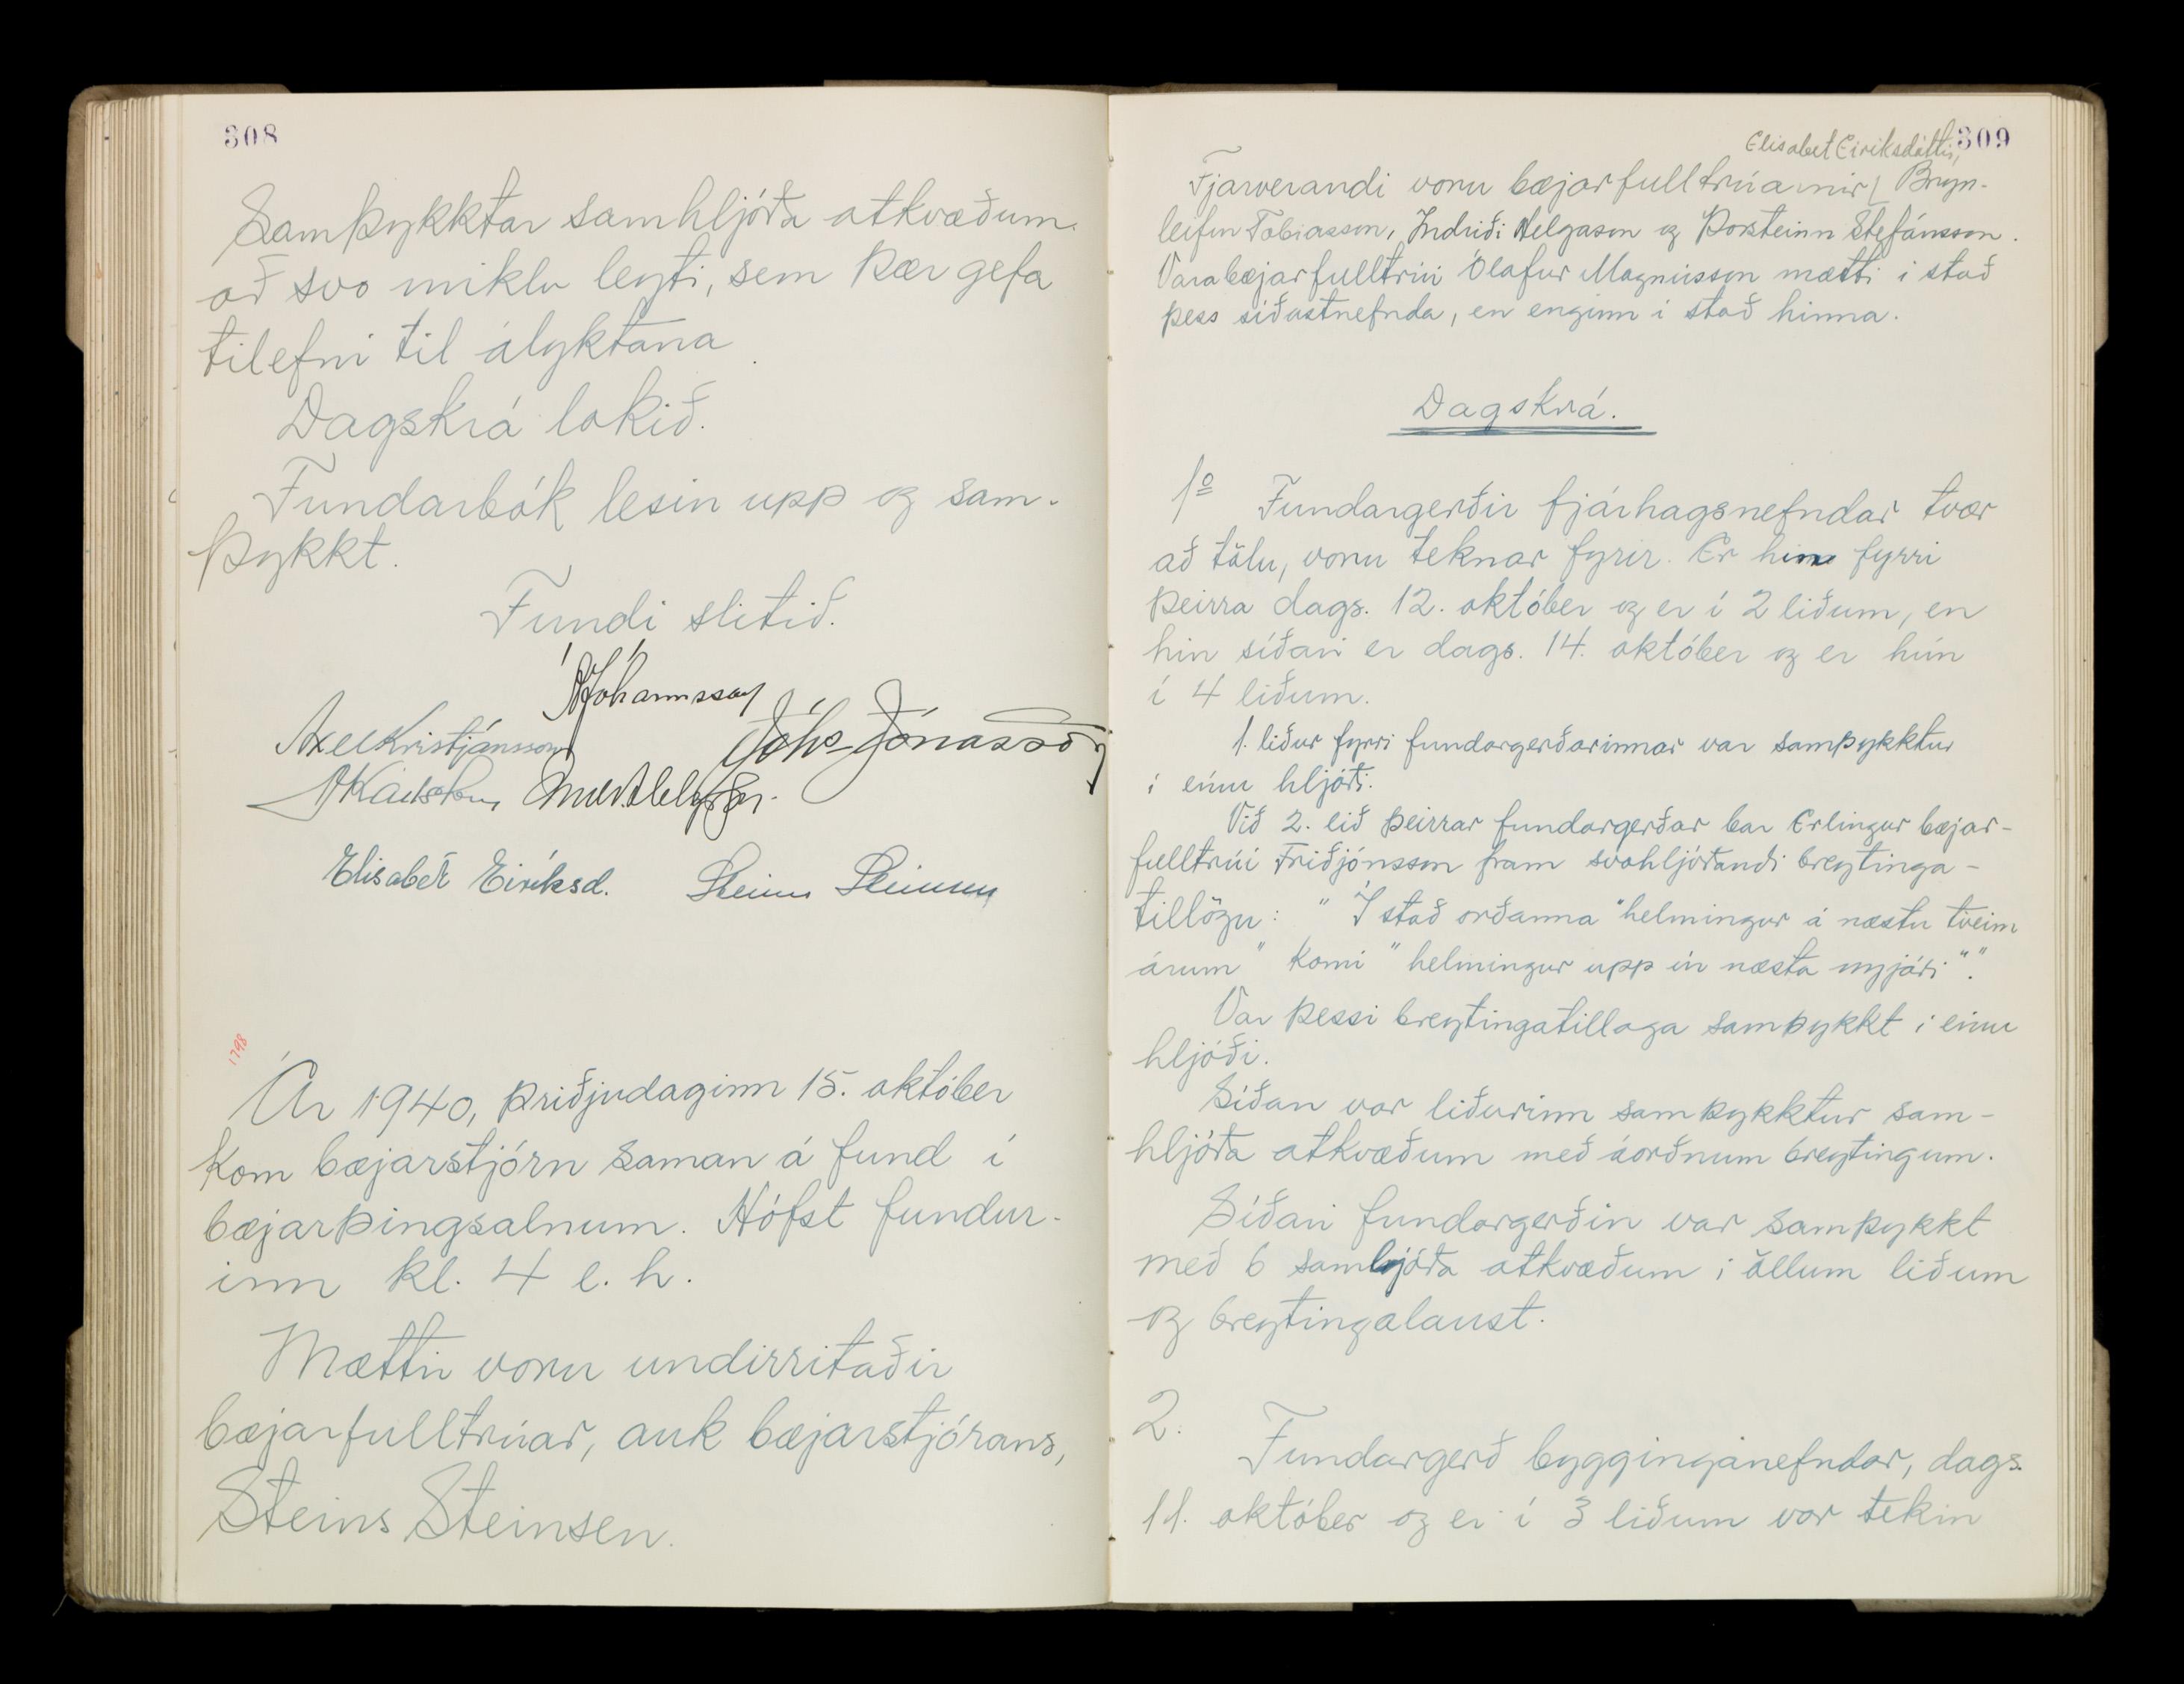 308
Samþykktar samhljóða atkvæðum
að svo miklu leyti, sem þær gefa
tilefni til ályktana.
Dagskrá lokið.
Fundarbók lesin upp og sam-
þykkt.
Fundi slitið.
Jóhannsson
Axel Kristjánsson
Jóhs Jónasson
Elisabet Eiríksd.
Steinn Steinsen
1798
Ár 1940, þriðjudaginn 15. október
kom bæjarstjórn saman á fund í
bæjarþingsalnum. Hófst fundur-
inn kl. 4 e. h.
Mættir voru undirritaðir
bæjarfulltrúar, auk bæjarstjórans,
Steins Steinsen.
309
Elisabet Eiriksdóttir,
Fjarverandi voru bæjarfulltrúarnir Bryn-
leifur Tobiasson, Indriði Helgason og Þorsteinn Stefánsson.
Varabæjarfulltrúi Ólafur Magnússon mætti i stað
þess síðastnefnda, en enginn i stað hinna.
Dagskrá.
1º Fundargerðir fjárhagsnefndar tvær
að tölu, voru teknar fyrir. Er hin fyrri
þeirra dags. 12. október og er í 2 liðum, en
hin síðari er dags. 14. október og er hún
í 4 liðum.
1. liður fyrri fundargerðarinnar var samþykktur
í einu hljóði.
Við 2. lið þeirrar fundargerðar bar Erlingur bæjar-
fulltrúi Friðjónsson fram svohljóðandi breytinga-
tillögu: " Í stað orðanna "helmingur á næstu tveim
árum" komi "helmingur upp úr næsta nýjári"."
Var þessi breytingatillaga samþykkt i einu
hljóði.
Síðan var liðurinn samþykktur sam-
hljóða atkvæðum með áorðnum breytingum.
Síðari fundargerðin var samþykkt
með 6 samhljóða atkvæðum i öllum liðum
og breytingalaust.
2.
Fundargerð bygginganefndar, dags.
11. október og er í 3 liðum var tekin